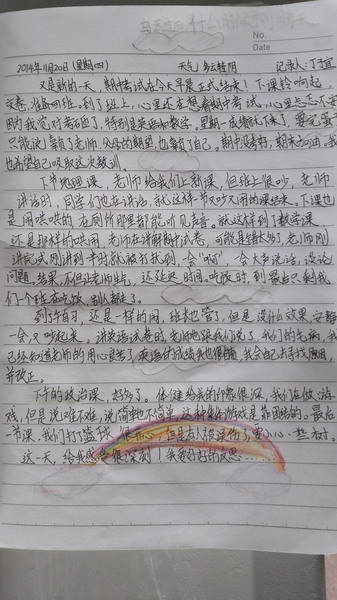 No.
Date
2014年11月20日(星期四) 天气 多云转阴 记录人:丁子宜
又是新的一天,期中考试在今天早晨正式结束!下课铃响起,
安静,准备回班。到了班上,心里还在想着期中考试,心里忐忑不安
因为我觉对考砸了,特别是英语和数学,星期一成绩就下来了,要完蛋
只能说辜负了老师、父母的期望,也辜负了自己。期中没考好,期末加油,我
也希望自己吸取这次教训
下节地理课,老师给我们上新课,但班上很吵,老师
讲话时,同学们也在讲话,就这样一节吵又闹的课结束,下课也
是闹哄哄的在厕所那里都能听见声音。就这样到了数学课,
还是那样的哄闹,老师在讲解期中试卷,可能是错太多,老师刚
讲完或刚讲到一半时就被打扰到,会"啊",会大声说话,议论
问题,结果,不但让老师生气,还延迟时间。吃饭时,到最后只剩我
们一个班在吃饭,别人都走了。
到了午自习,还是一样的闹,班长也管了,但是没什么效果,安静
一会,又吵起来。讲英语试卷时,老师也跟我们说了我们的毛病,我
已经知道老师的用心良苦了,英语的成绩我也很糟,我会自己去寻找原因,
并改正。
下午的政治课,好多了。体健给我的印象很深,我们在做游
戏,但是说难不难,说简单也不简单,这种集体游戏是靠团结的。最后
一节课,我们打了篮球,很开心,但是有人被误伤了,要小心一些才对。
这一天,给我感受很深刻!我要好好的反思……